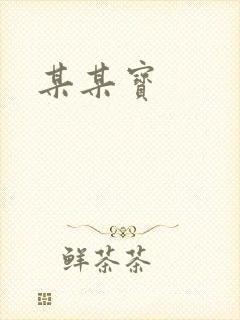 某某寶
鲜茶茶